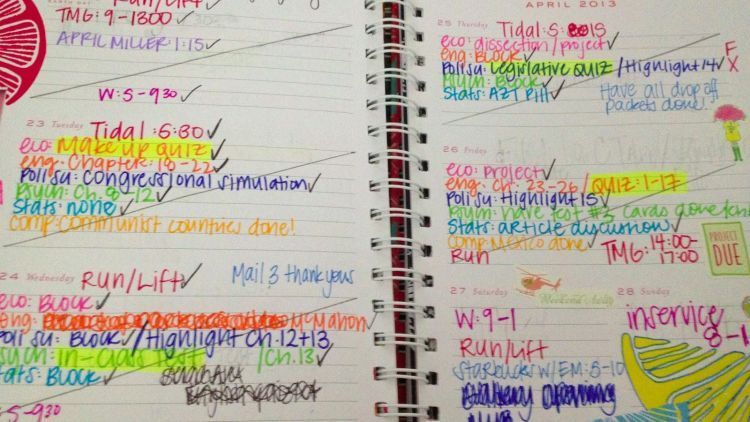 Run/Lift
TMG: 9-1300
APRIL MILLER 1:15
W: 5-930
23 Tuesday
Tidal: 6:30
eco: Make up quiz
eng: Chapter: 18-22
Poli su: congressional simulation
Psych: Ch. 8-12
Stats: none
comp: communist countries done!
24 Wednesday
Run/Lift
Mail 3 thank yous
eco: BLOCK
eng: McMahon
Poli su: BLOCK / Highlight Ch. 12+13
Psych: in-class Test / Ch. 13
Stats: BLOCK
5-930
APRIL 2013
25 Thursday
Tidal: 5:15
eco: dissection/project
eng: BLOCK
Poli su: Legislative QUIZ / Highlight 14
F
X
Psych: Block
Stats: AZT Pill
Have all drop off
packets done!
26 Friday
eco: project
eng: Ch. 23-26 / QUIZ: 1-17
Poli su: Highlight 15
Psych: have test #3 cards done
Stats: article discussion
Comp: Mexico done
Run
TMG: 14:00-
17:00
PROJECT
DUE
27 Saturday
W: 9-1
Run/Lift
Starbucks w/ EM: 8-10
28 Sunday
inservice
8-1